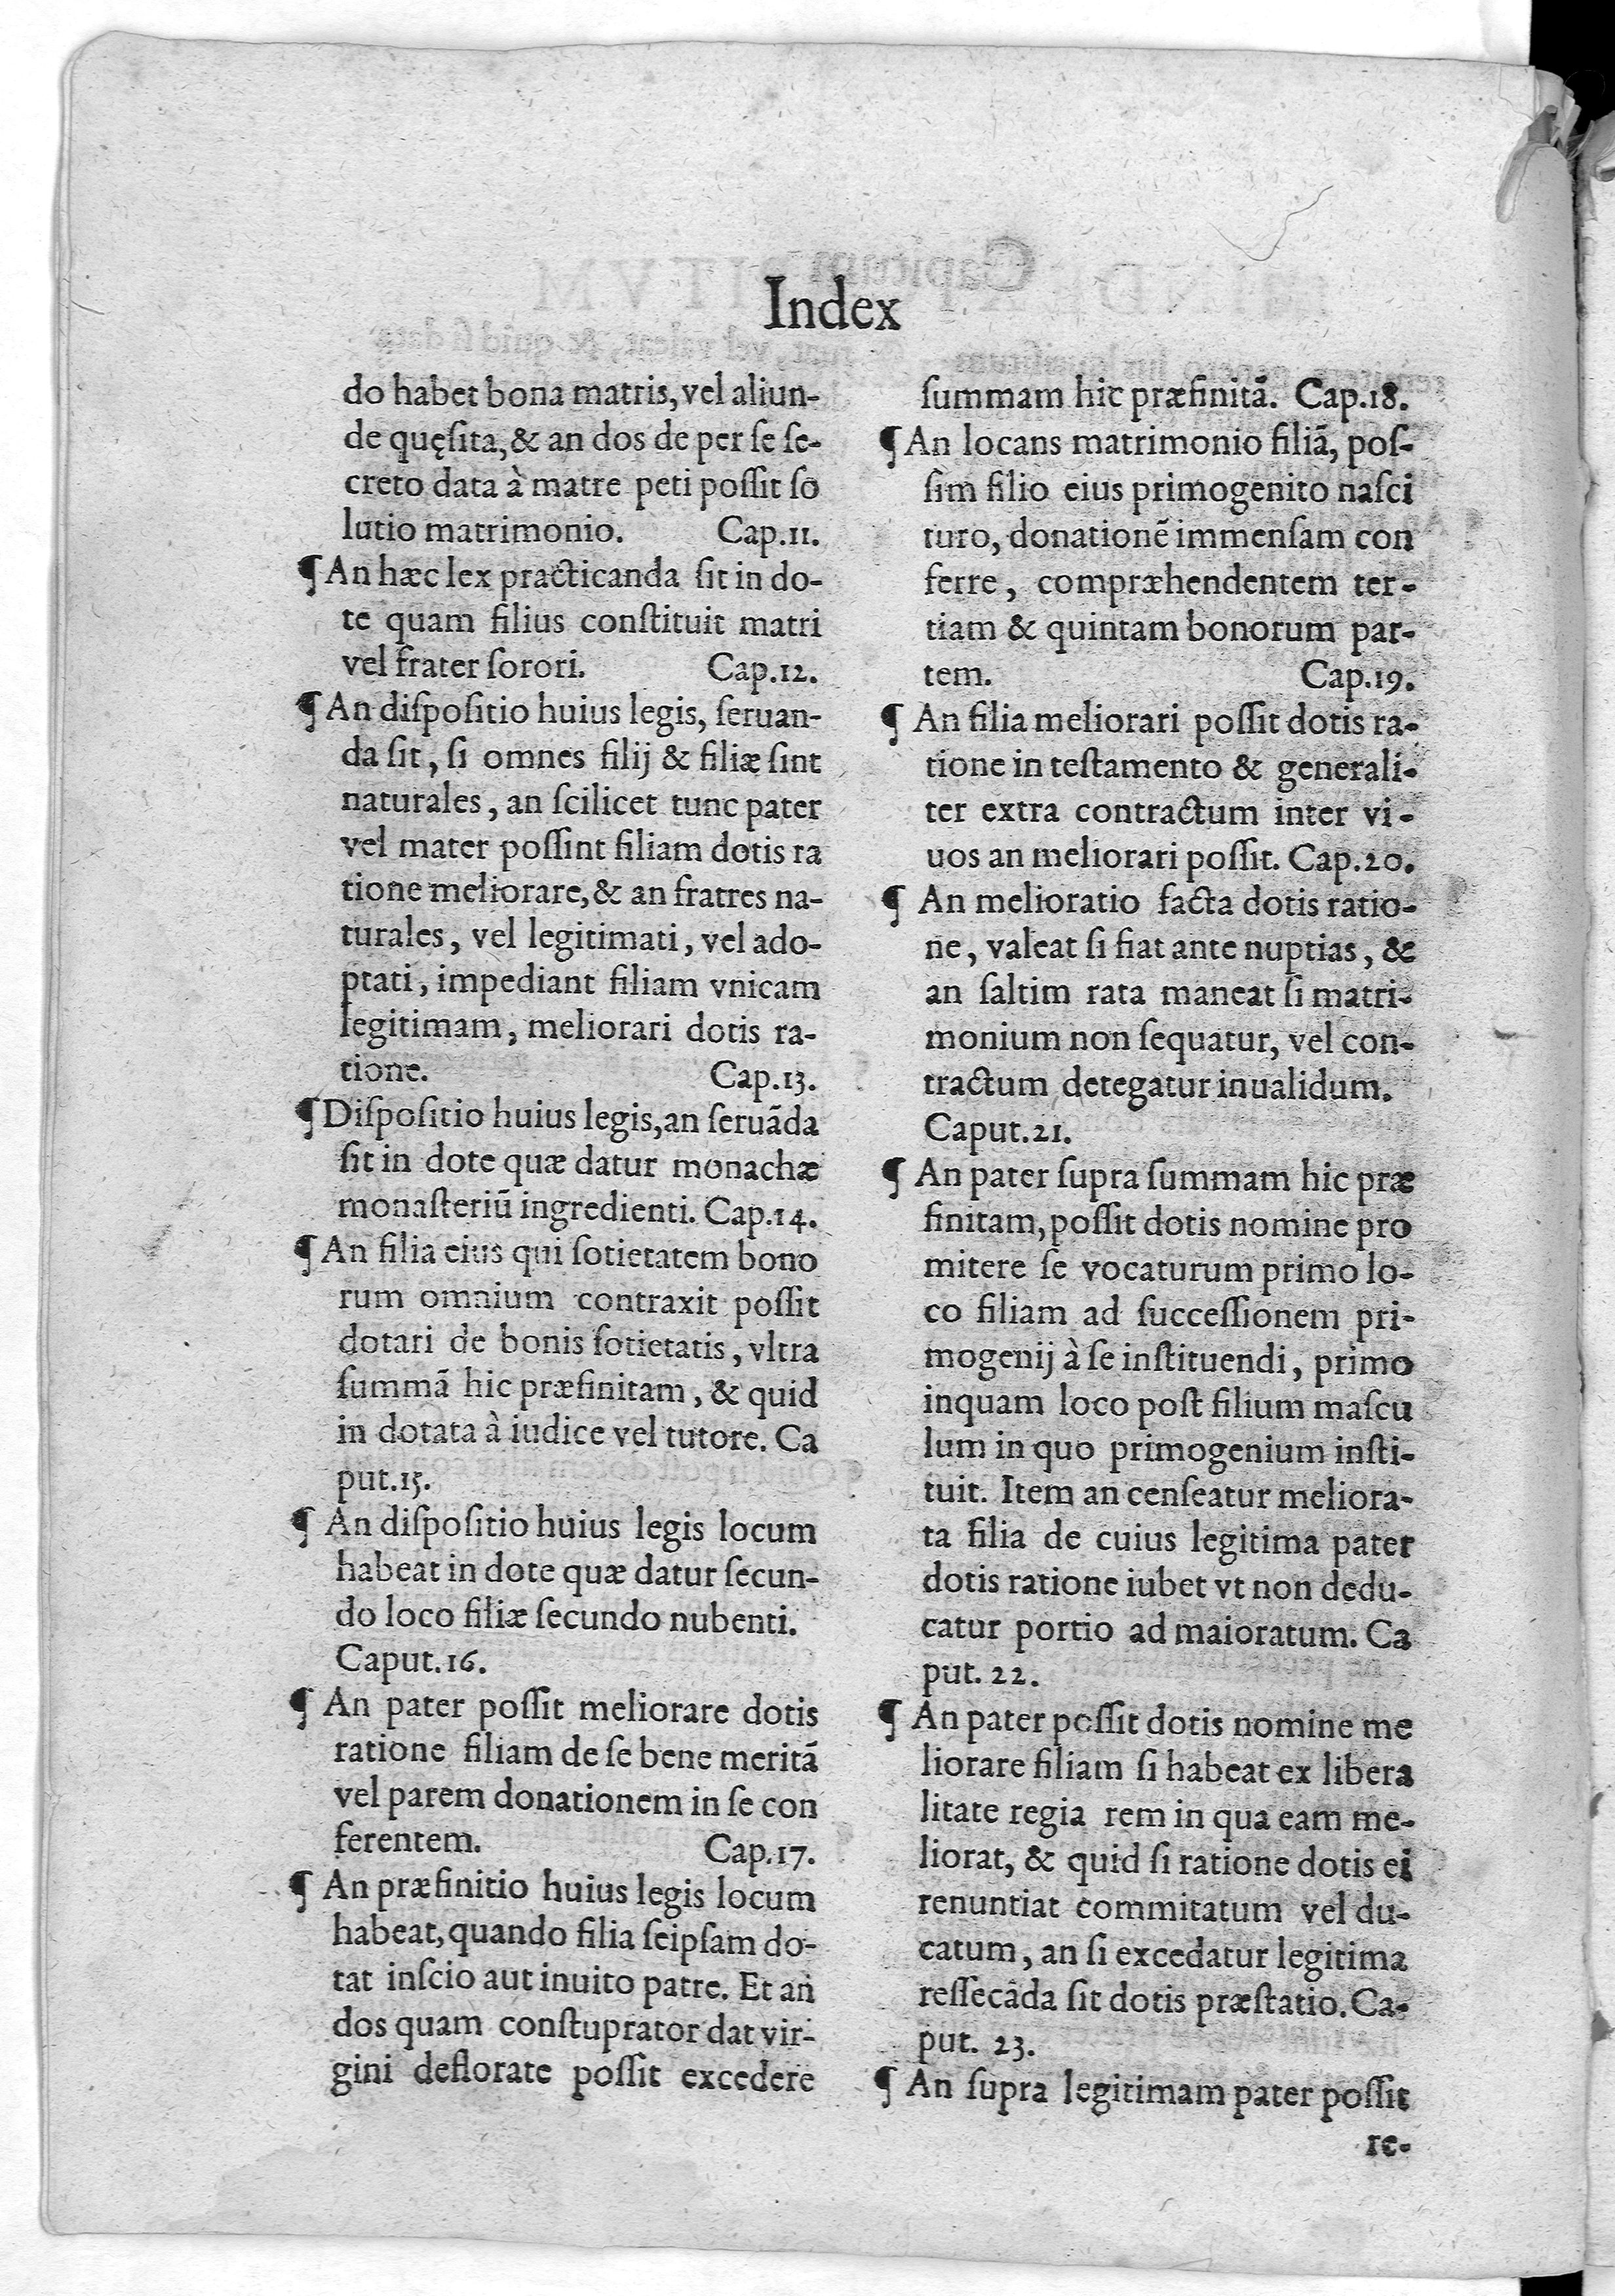 Index
do habet bona matris, vel aliun-
de quęſita, & an dos de per ſe ſe-
creto data à matre peti poſſit ſo
lutio matrimonio. Cap.11.
¶An hæc lex practicanda ſit in do-
te quam filius conſtituit matri
vel frater ſorori. Cap.12.
¶An diſpoſitio huius legis, ſeruan-
da ſit, ſi omnes filij & filiæ ſint
naturales, an ſcilicet tunc pater
vel mater poſſint filiam dotis ra
tione meliorare, & an fratres na-
turales, vel legitimati, vel ado-
ptati, impediant filiam vnicam
legitimam, meliorari dotis ra-
tione. Cap.13.
¶Diſpoſitio huius legis, an ſeruãda
ſit in dote quæ datur monachæ
monaſteriũ ingredienti. Cap.14.
¶An filia eius qui ſotietatem bono
rum omnium contraxit poſſit
dotari de bonis ſotietatis, vltra
ſummã hic præfinitam, & quid
in dotata à iudice vel tutore. Ca
put.15.
¶An diſpoſitio huius legis locum
habeat in dote quæ datur ſecun-
do loco filiæ ſecundo nubenti.
Caput.16.
¶An pater poſſit meliorare dotis
ratione filiam de ſe bene meritã
vel parem donationem in ſe con
ferentem. Cap.17.
¶An præfinitio huius legis locum
habeat, quando filia ſeipſam do-
tat inſcio aut inuito patre. Et an
dos quam conſtuprator dat vir-
gini deflorate poſſit excedere
ſummam hic præfinitã. Cap.18.
¶An locans matrimonio filiã, poſ-
ſim filio eius primogenito naſci
turo, donationẽ immenſam con
ferre, compræhendentem ter-
tiam & quintam bonorum par-
tem. Cap.19.
¶An filia meliorari poſſit dotis ra-
tione in teſtamento & generali-
ter extra contractum inter vi-
uos an meliorari poſſit. Cap.20.
¶An melioratio facta dotis ratio-
ne, valeat ſi fiat ante nuptias, &
an ſaltim rata maneat ſi matri-
monium non ſequatur, vel con-
tractum detegatur inualidum.
Caput.21.
¶An pater ſupra ſummam hic præ
finitam, poſſit dotis nomine pro
mitere ſe vocaturum primo lo-
co filiam ad ſucceſſionem pri-
mogenij à ſe inſtituendi, primo
inquam loco poſt filium maſcu
lum in quo primogenium inſti-
tuit. Item an cenſeatur meliora-
ta filia de cuius legitima pater
dotis ratione iubet vt non dedu-
catur portio ad maioratum. Ca
put. 22.
¶An pater poſſit dotis nomine me
liorare filiam ſi habeat ex libera
litate regia rem in qua eam me-
liorat, & quid ſi ratione dotis ei
renuntiat commitatum vel du-
catum, an ſi excedatur legitima
reſſecãda ſit dotis præſtatio. Ca-
put. 23.
¶An ſupra legitimam pater poſſit
re-